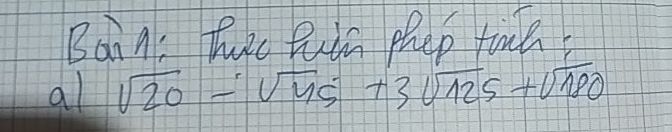 Bài 1: Thực hiện phép tính:
a) √20 - √45 + 3√125 + √180